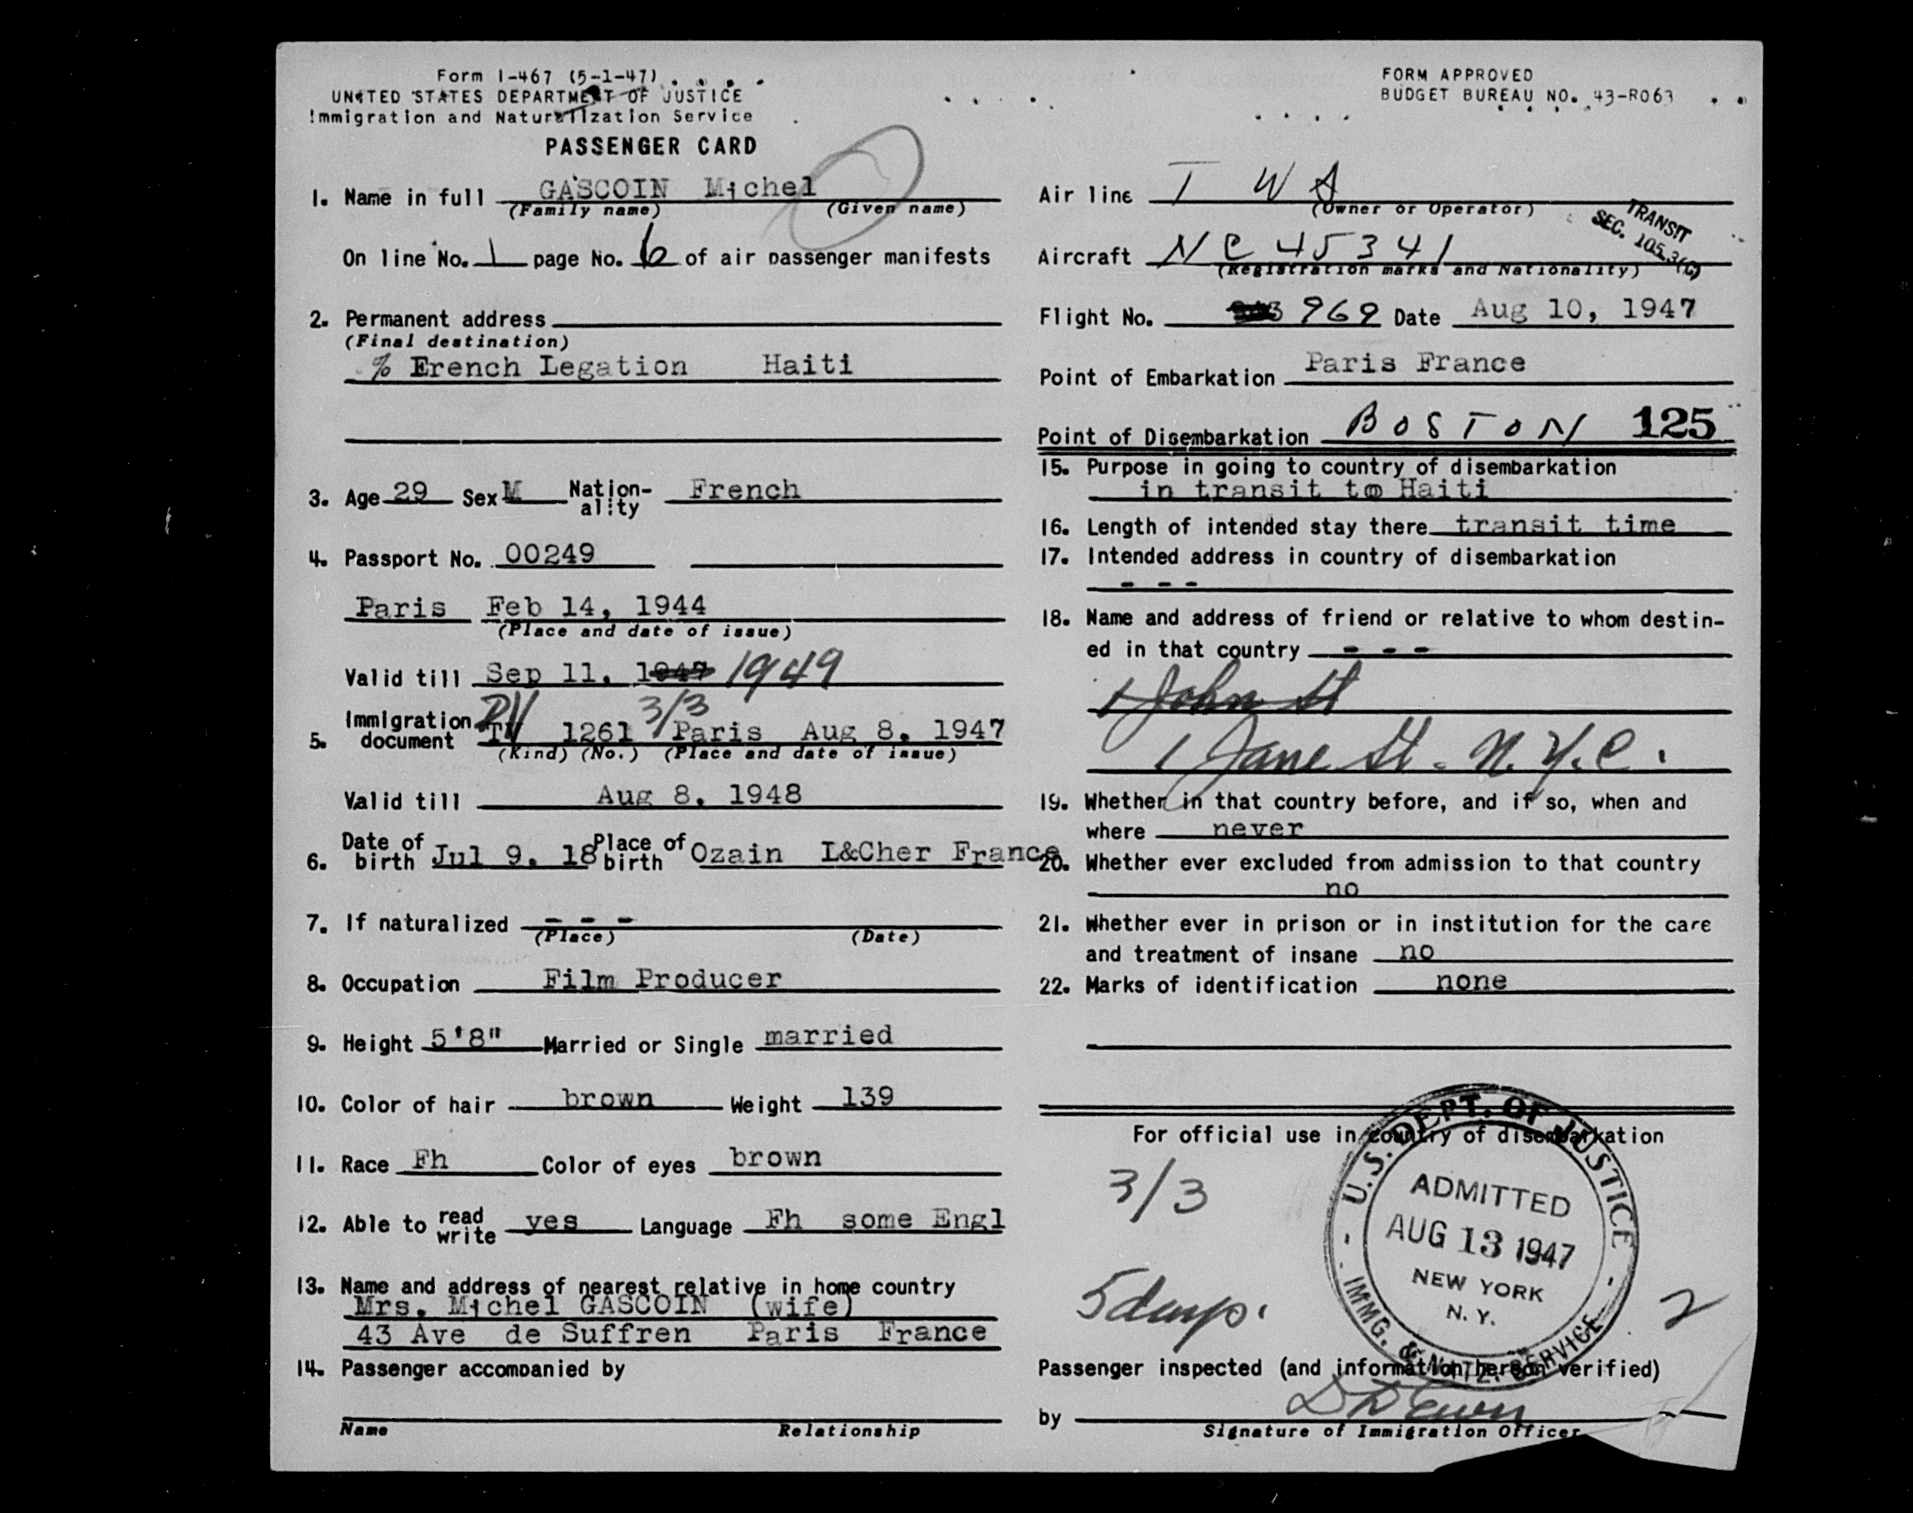 Form I-467 (5-1-47)
UNITED STATES DEPARTMENT OF JUSTICE
Immigration and Naturalization Service
PASSENGER CARD
1. Name in full GASCOIN Michel
(Family name) (Given name)
On line No. 1 page No. 6 of air passenger manifests
2. Permanent address
(Final destination)
% French Legation Haiti
3. Age 29 Sex M Nation-ality French
4. Passport No. 00249
Paris Feb 14, 1944
(Place and date of issue)
Valid till Sep 11, 1947 1949
PV 3/3
5. Immigration document TV 1261 Paris Aug 8, 1947
(Kind) (No.) (Place and date of issue)
Valid till Aug 8, 1948
6. Date of birth Jul 9, 18 Place of birth Ozain L&Cher France
7. If naturalized - - -
(Place) (Date)
8. Occupation Film Producer
9. Height 5'8" Married or Single married
10. Color of hair brown Weight 139
11. Race Fh Color of eyes brown
12. Able to read write yes Language Fh some Engl
13. Name and address of nearest relative in home country
Mrs. Michel GASCOIN (wife)
43 Ave de Suffren Paris France
14. Passenger accompanied by
Name Relationship
FORM APPROVED
BUDGET BUREAU NO. 43-R063
Air line T W A
(Owner or Operator)
TRANSIT
SEC. 105.3(C)
Aircraft NC 45341
(Registration marks and Nationality)
Flight No. 969 Date Aug 10, 1947
Point of Embarkation Paris France
Point of Disembarkation BOSTON 125
15. Purpose in going to country of disembarkation
in transit to Haiti
16. Length of intended stay there transit time
17. Intended address in country of disembarkation
- - -
18. Name and address of friend or relative to whom destin-
ed in that country - - -
1 John St
1 Jane St. N.Y.C.
19. Whether in that country before, and if so, when and
where never
20. Whether ever excluded from admission to that country
no
21. Whether ever in prison or in institution for the care
and treatment of insane no
22. Marks of identification none
For official use in country of disembarkation
3/3
5 days.
U.S. DEPT. OF JUSTICE
ADMITTED
AUG 13 1947
NEW YORK
N. Y.
IMMG. & NATZ. SERVICE
2
Passenger inspected (and information hereon verified)
by
Signature of Immigration Officer